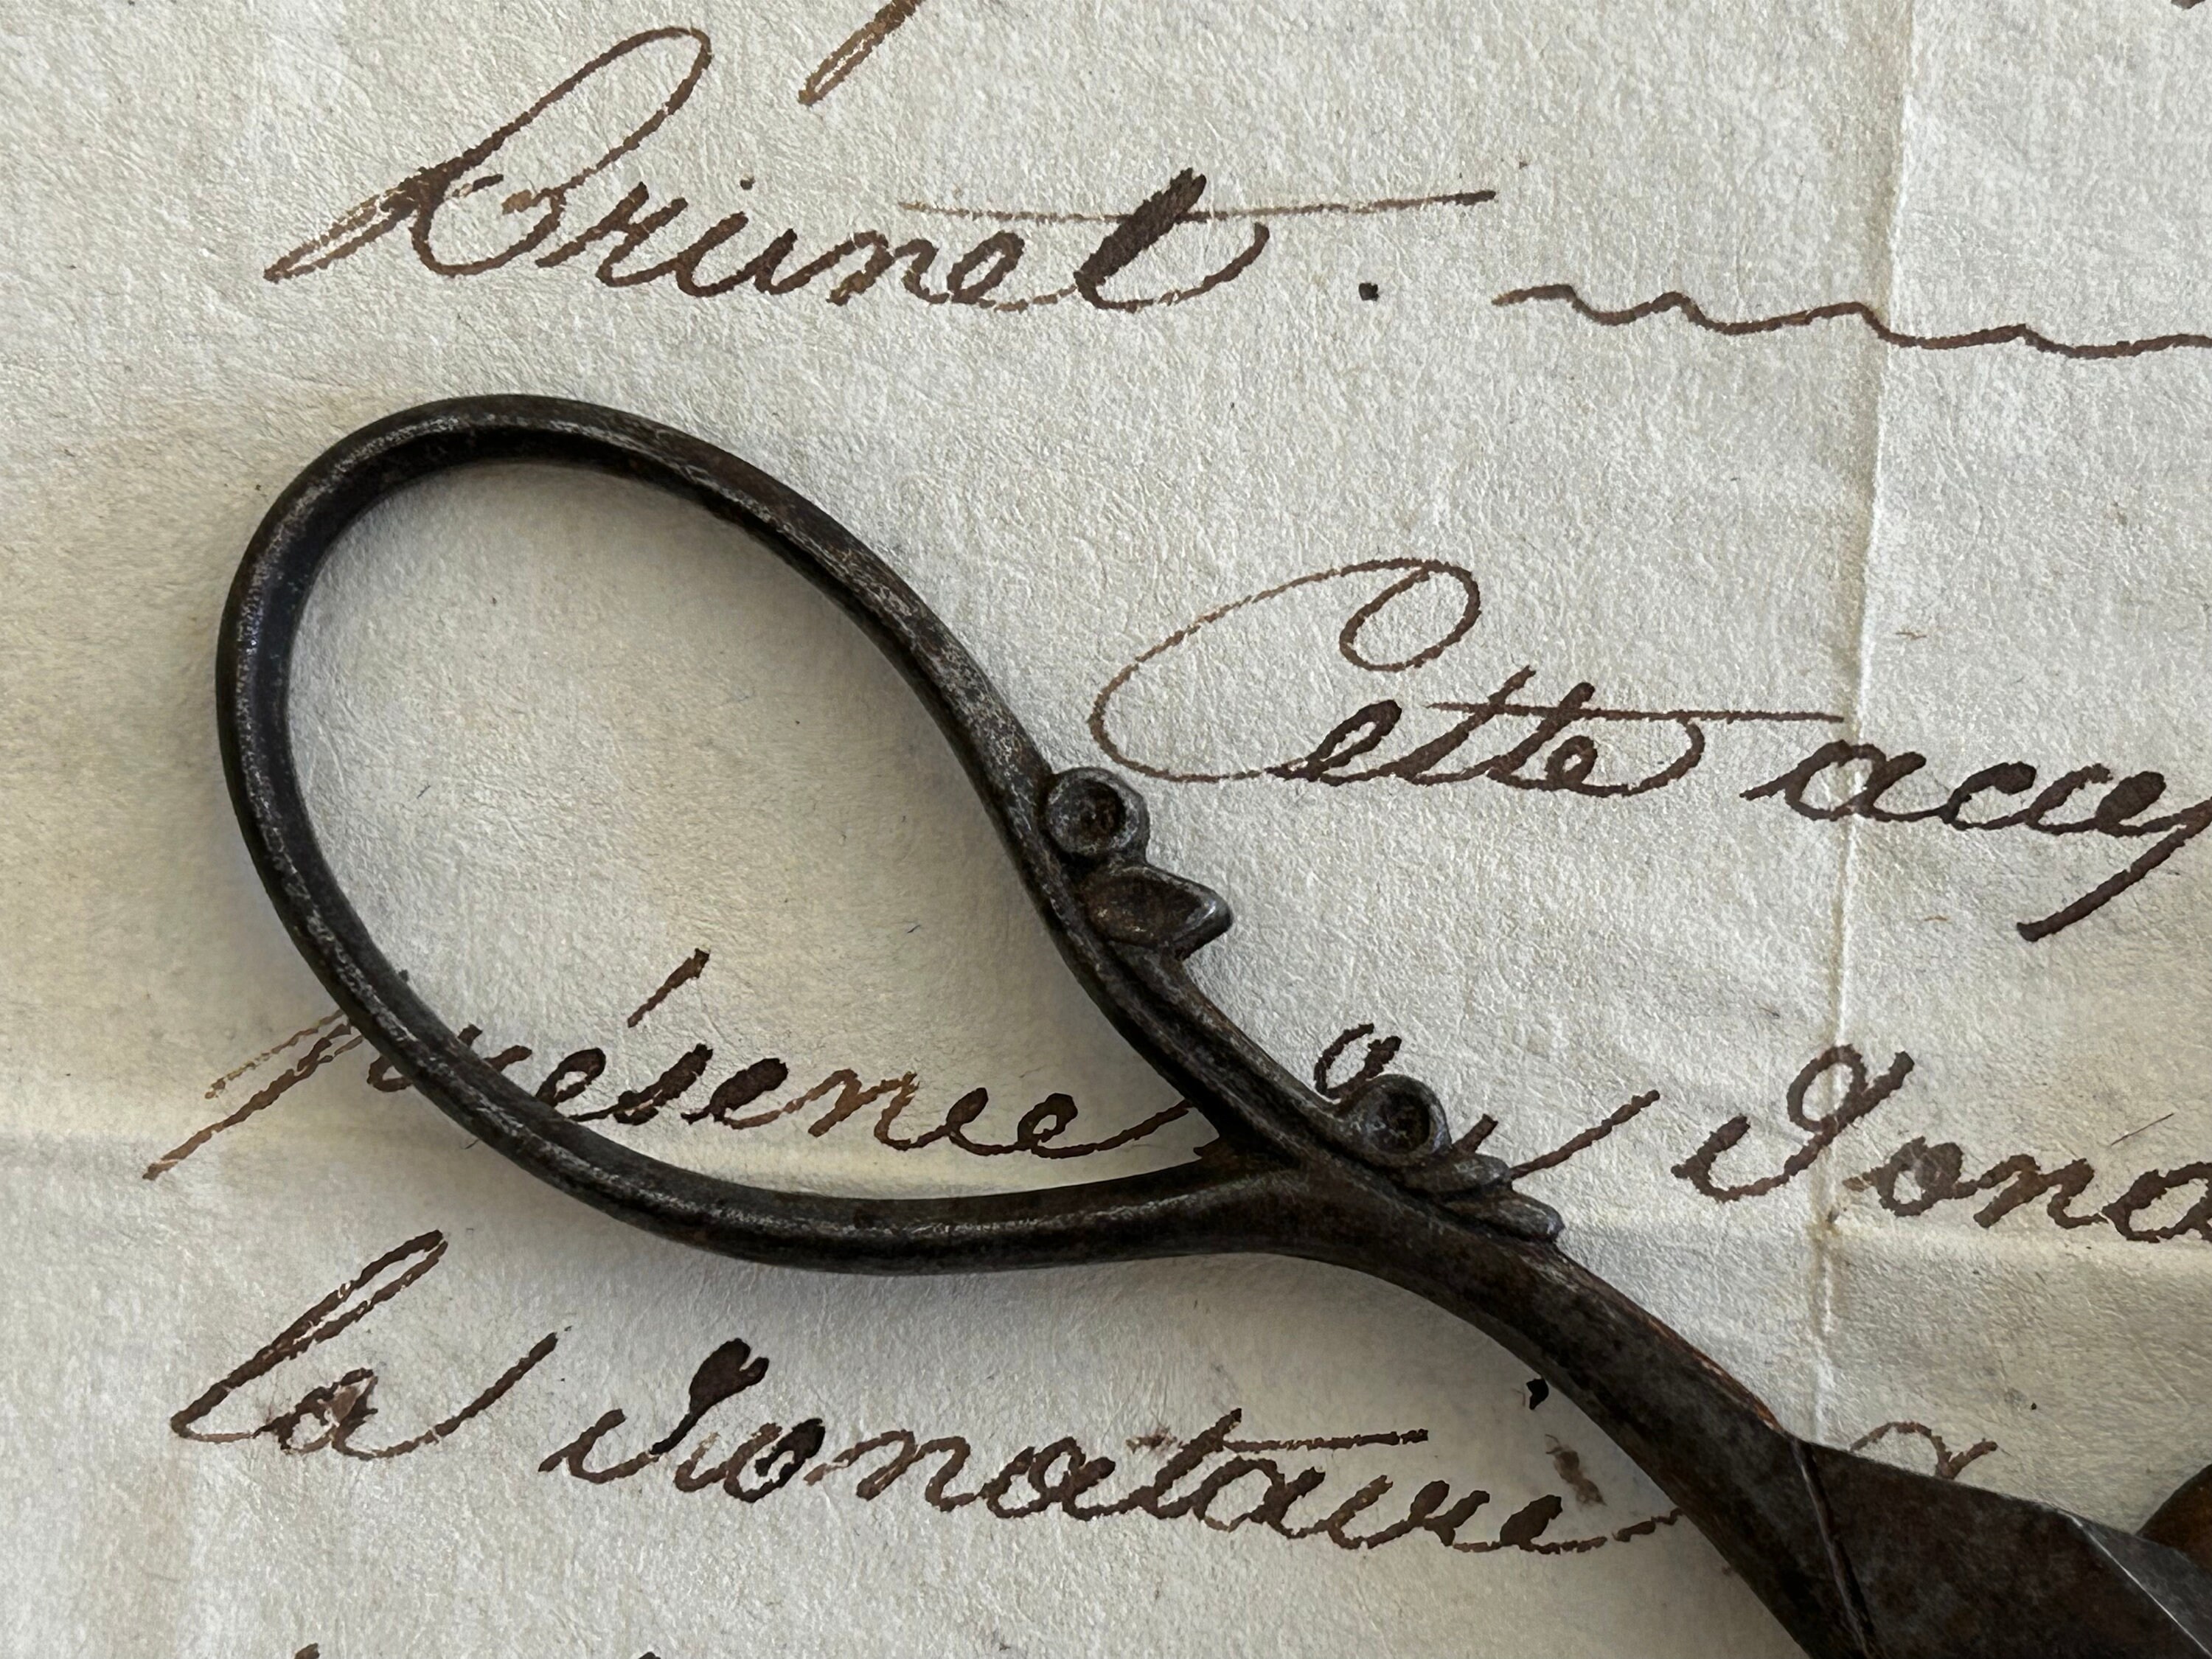 Brunet.
Cette accep
présence
la Donataire